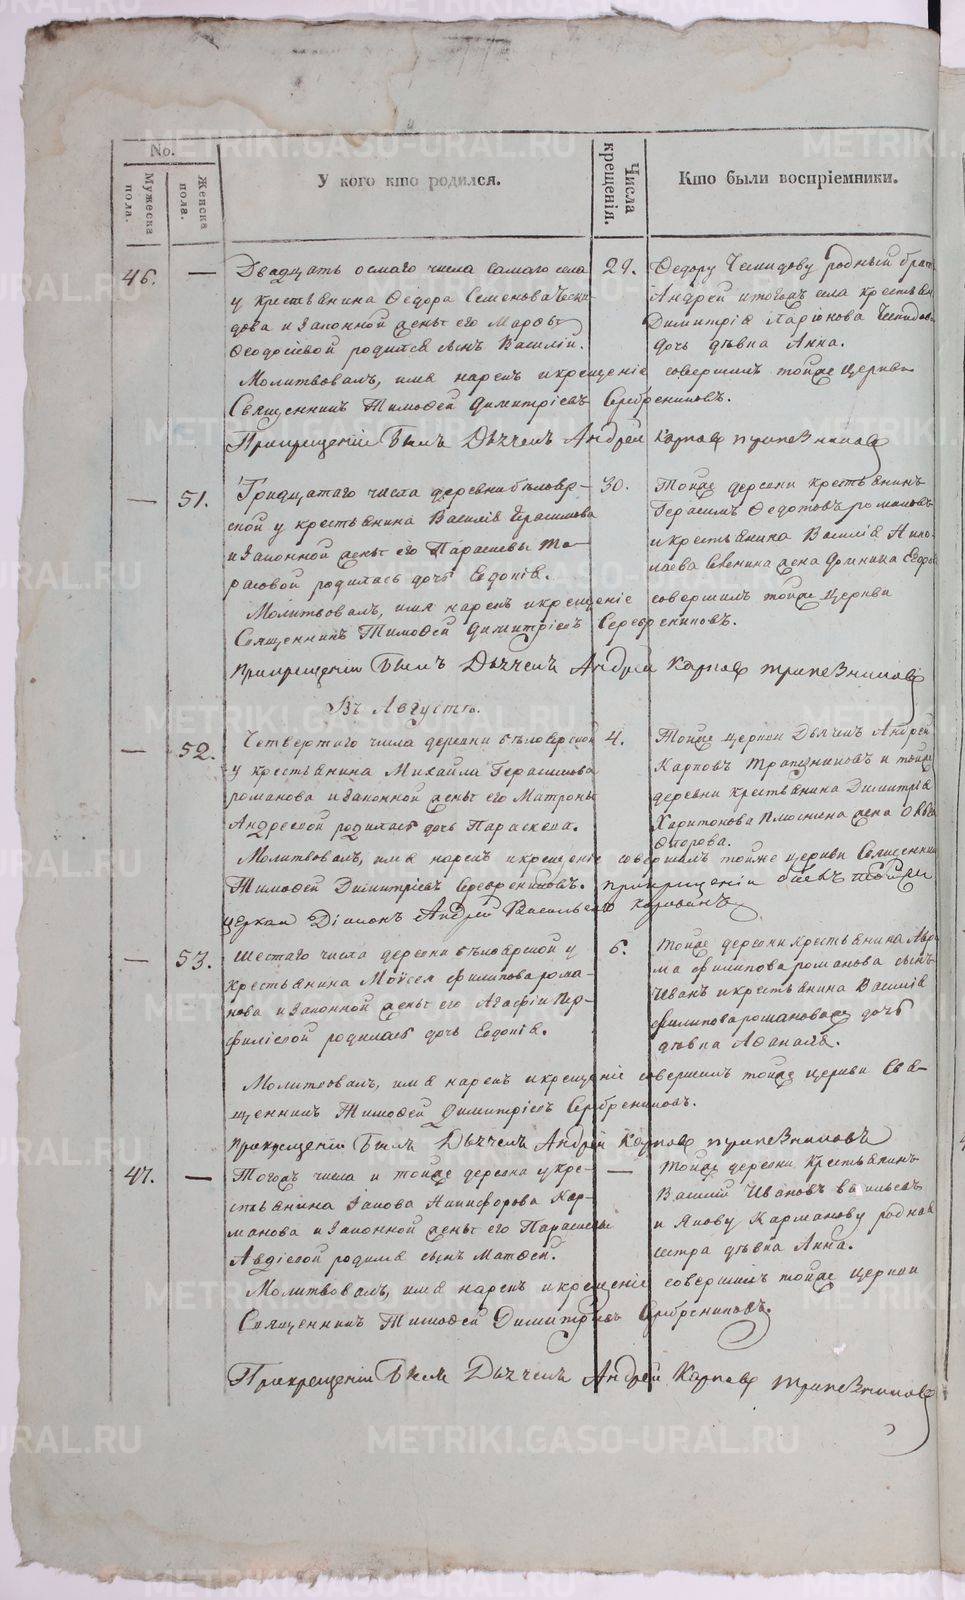 No.
Мужеска пола.
Женска пола.
У кого кто родился.
Числа крещенія.
Кто были воспріемники.
46.
—
Двадцать осмаго числа самаго села
у крестьянина Федора Семенова
и законной жены его Марѳы
Феодосіевой родился сынъ Василій.
29.
Федору родный братъ
Андрей и тогожъ села крестьян
Димитрія Иларіонова
дочь дѣвка Анна.
Молитвовалъ, имя нарекъ и крещеніе совершилъ тойже церкви
Священникъ Тимофей Димитріевъ Серебренниковъ.
При крещеніи былъ Дьячекъ Андрей Карповъ Трапезниковъ
—
51.
Тридцатаго числа деревни Бѣлояр-
ской у крестьянина Василія Герасимова
и законной жены его Парасковьи Та-
расовой родилась дочь Евдокія.
30.
Тойже деревни крестьянинъ
Герасимъ Федотовъ романовъ
и крестьянина Василія Нико-
лаева жена Домника
Молитвовалъ, имя нарекъ и крещеніе совершилъ тойже церкви
Священникъ Тимофей Димитріевъ Серебренниковъ.
При крещеніи былъ Дьячекъ Андрей Карповъ Трапезниковъ
Въ Августѣ.
—
52.
Четвертаго числа деревни Бѣлоярской
у крестьянина Михайла Герасимова
романова и законной жены его Матроны
Андреевой родилась дочь Параскева.
4.
Тойже церкви Дьячекъ Андрей
Карповъ Трапезниковъ и тойже
деревни крестьянина Димитрія
Харитонова Плюснина жена
Молитвовалъ, имя нарекъ и крещеніе совершилъ тойже церкви Священникъ
Тимофей Димитріевъ Серебренниковъ. при крещеніи былъ тойже
церкви Діаконъ Андрей Васильевъ
—
53.
Шестаго числа деревни Бѣлоярской у
крестьянина Моѵсея Филипова рома-
нова и законной жены его Агафіи Пер-
филіевой родилась дочь Евдокія.
6.
Тойже деревни крестьянина Авра-
ма Филипова романова сынъ
Иванъ и крестьянина Василія
Филипова романова дочь
дѣвка
Молитвовалъ, имя нарекъ и крещеніе совершилъ тойже церкви Свя-
щенникъ Тимофей Димитріевъ Серебренниковъ.
При крещеніи былъ Дьячекъ Андрей Карповъ Трапезниковъ
47.
—
Тогожъ числа и тойже деревни у кре-
стьянина Іакова Никифорова Кар-
манова и законной жены его Парасковьи
Авдіевой родился сынъ Матѳей.
—
Тойже деревни крестьянинъ
Василій Ивановъ
и Якову Карманову родная
сестра дѣвка Анна.
Молитвовалъ, имя нарекъ и крещеніе совершилъ тойже церкви
Священникъ Тимофей Димитріевъ Серебренниковъ.
При крещеніи былъ Дьячекъ Андрей Карповъ Трапезниковъ
METRIKI.GASO-URAL.RU